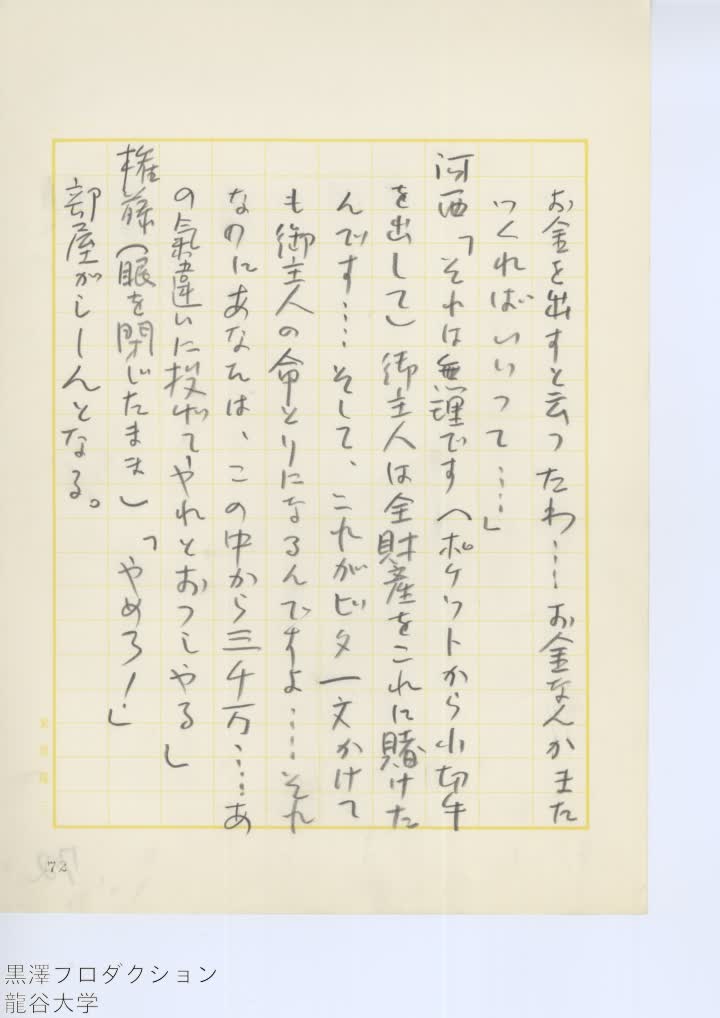 お金を出すと云ったわ……お金なんかまた
つくればいいって……」
河西「それは無理です（ポケットから小切手
を出して）御主人は全財産をこれに賭けた
んです……そして、これがビタ一文かけて
も御主人の命とりになるんですよ……それ
なのにあなたは、この中から三千万……あ
の氣違いに投げてやれとおっしゃる」
権藤（眼を閉じたまま）「やめろ！」
部屋がしーんとなる。
72
黒澤プロダクション
龍谷大学